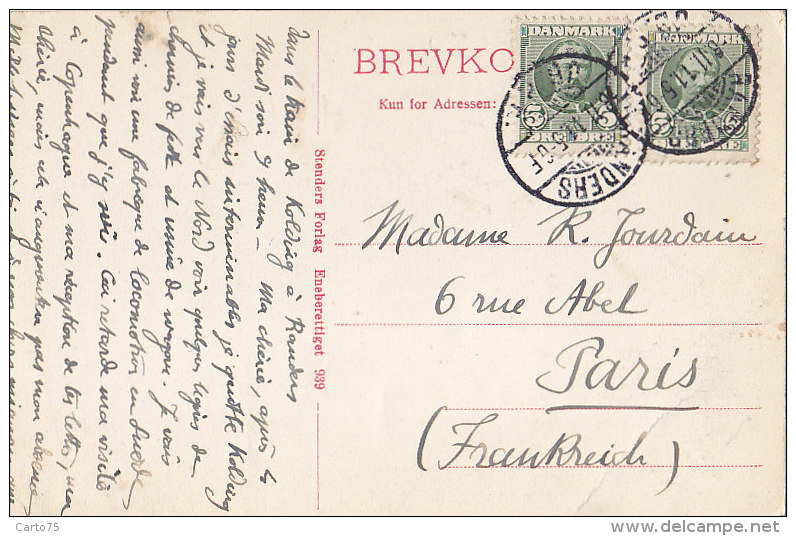 BREVKO
Kun for Adressen:
DANMARK
5 5
ØRE ØRE
DANMARK
RANDERS
Madame R. Jourdain
6 rue Abel
Paris
(Frankreich)
Stenders Forlag Eneberettiget 939
Dans le train de Kolding à Randers
Mardi soir 9 heures – Ma chérie, après 4
jours d'essais interminables je quitte Kolding
et je vais vers le Nord voir quelques lignes de
chemins de fer et usine de wagons. Je vais
aussi voir une fabrique de locomotives en Suède
pendant que j'y suis. Cai retarde ma visite
à Copenhague et ma réception de tes lettres, ma
chérie, mais cela n'augmentera pas mon absence
Carto75
delcampe.net